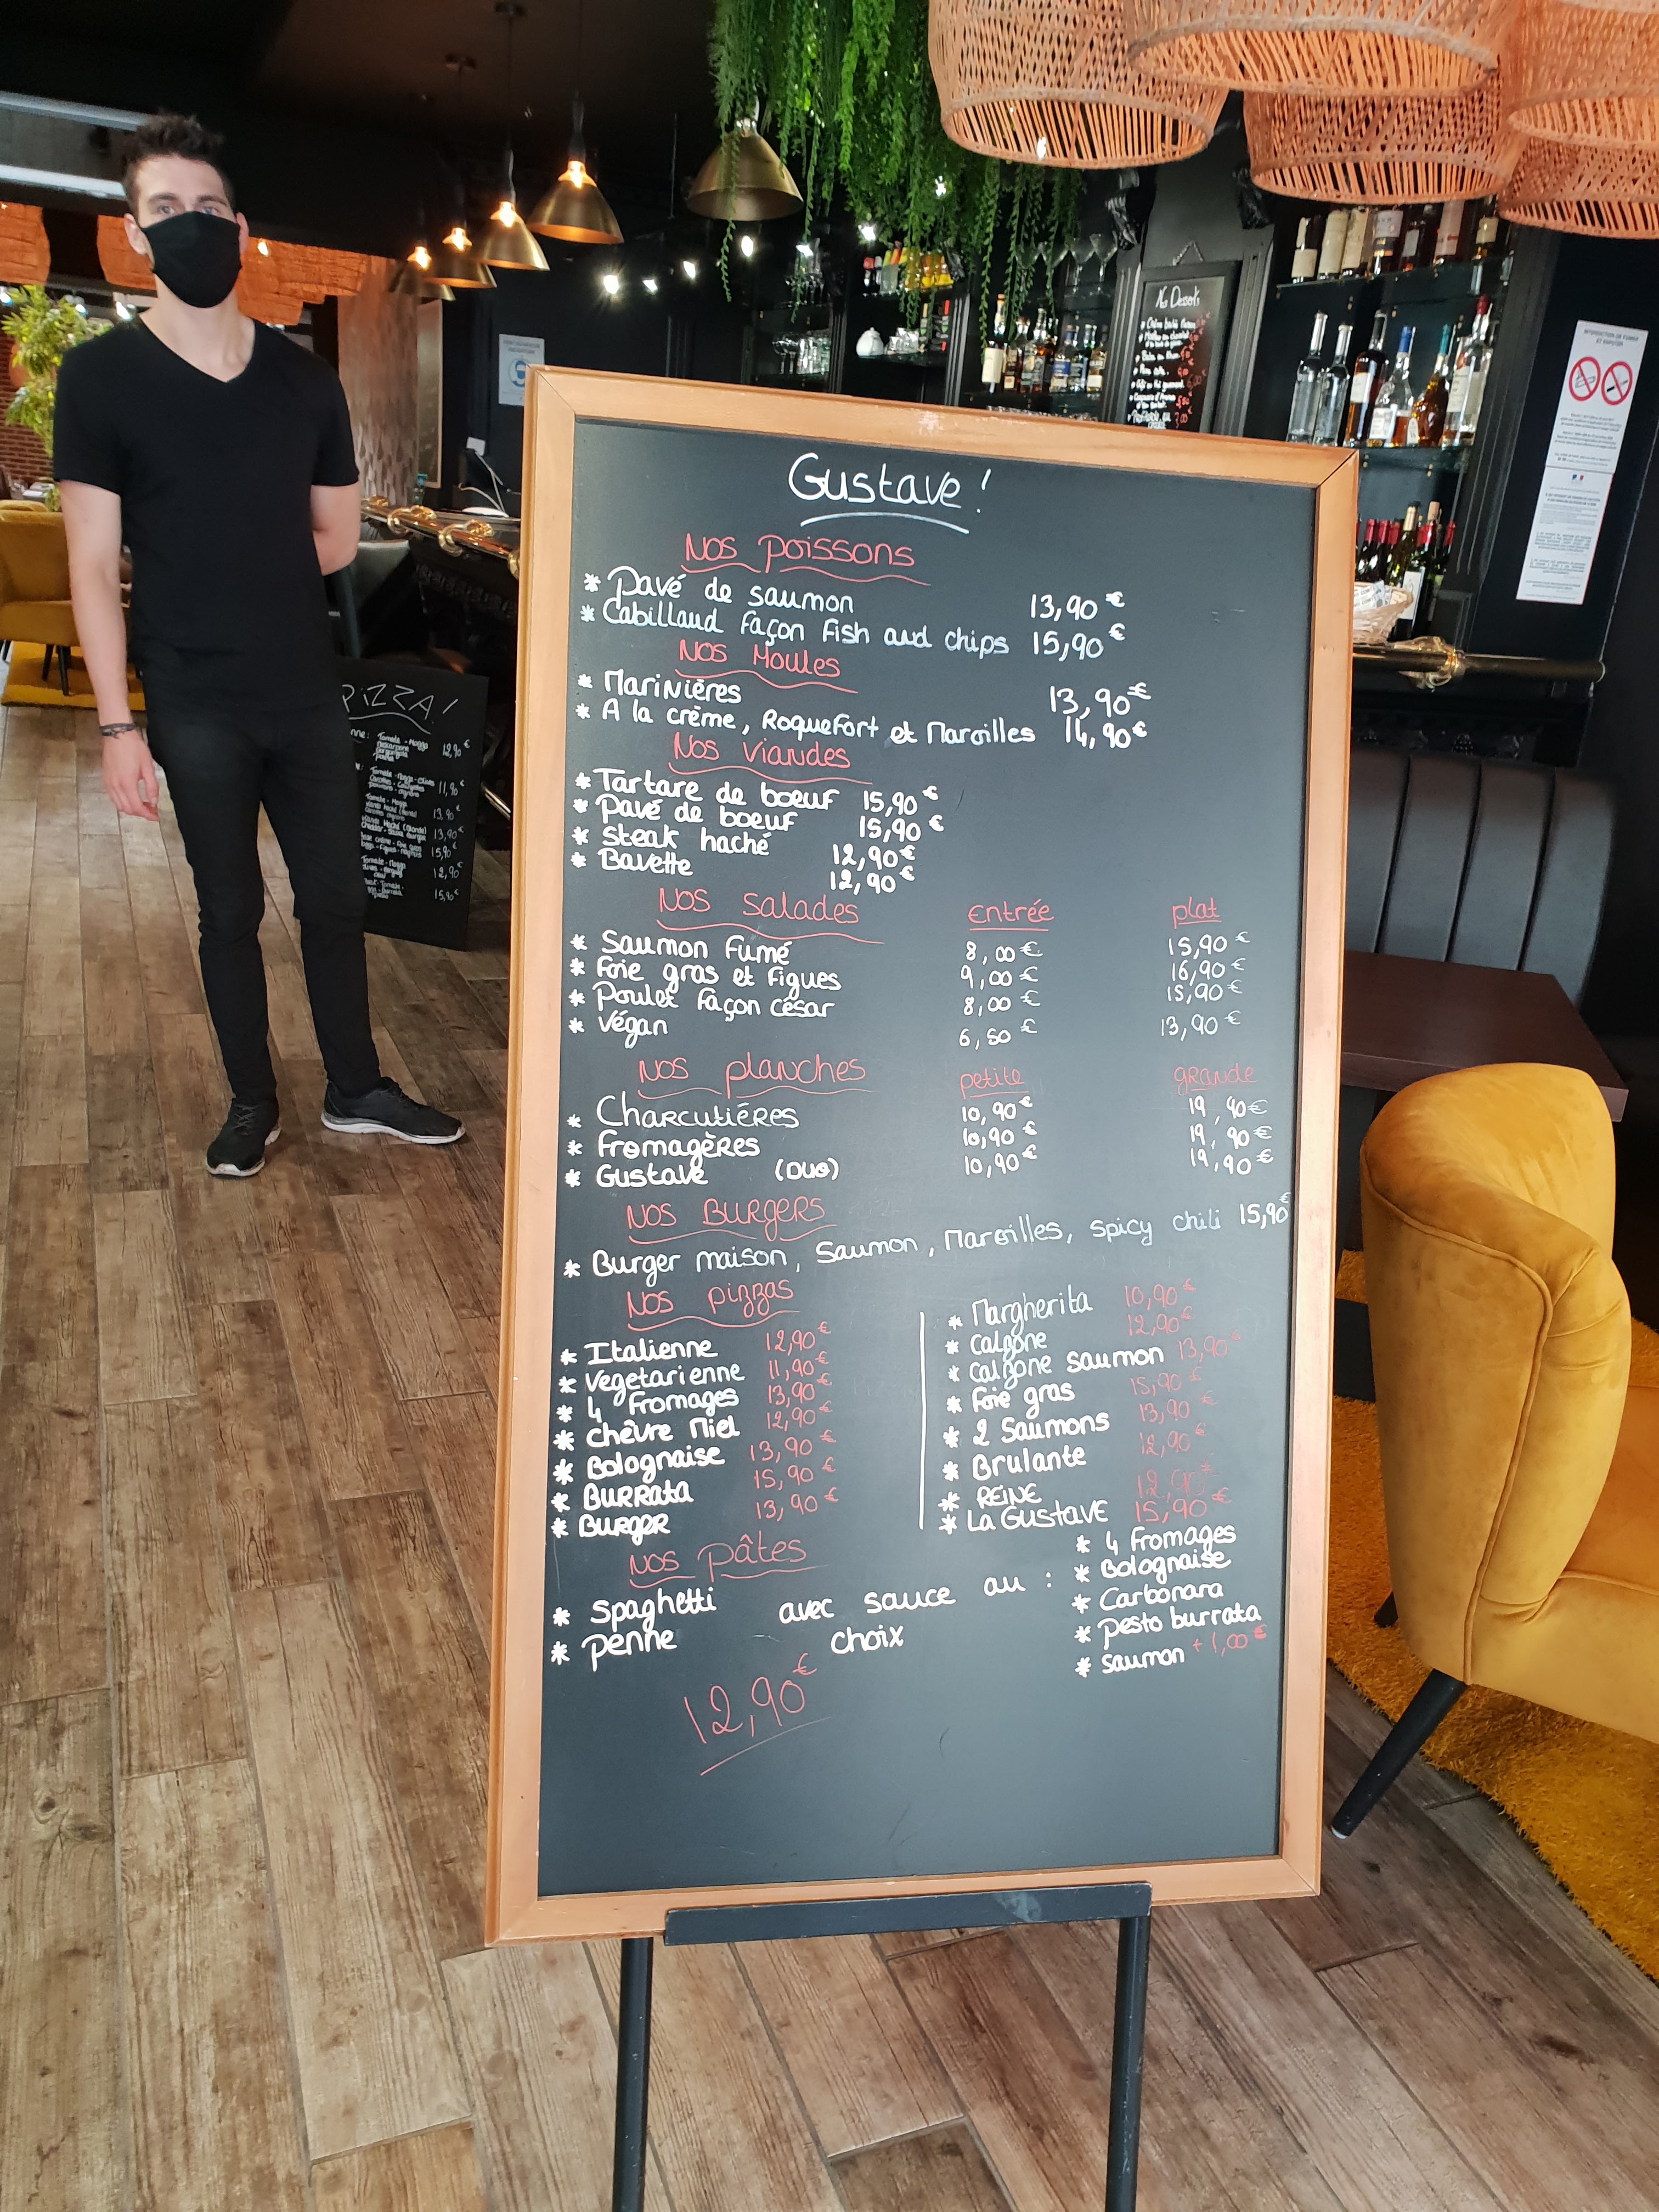 Gustave!
Nos poissons
* Pavé de saumon 13,90€
* Cabillaud façon Fish and chips 15,90€
Nos Moules
* Marinières 13,90€
* A la crème, Roquefort et Maroilles 14,90€
Nos viandes
* Tartare de boeuf 15,90€
* Pavé de boeuf 15,90€
* Steak haché 12,90€
* Bavette 12,90€
Nos salades entrée plat
* Saumon Fumé 8,00€ 15,90€
* Foie gras et Figues 9,00€ 16,90€
* Poulet façon césar 8,00€ 15,90€
* Végan 6,50€ 13,90€
Nos planches petite grande
* Charcutiéres 10,90€ 19,90€
* Fromagères 10,90€ 19,90€
* Gustave (Duo) 10,90€ 19,90€
Nos Burgers
* Burger maison, Saumon, Maroilles, spicy chili 15,90€
Nos pizzas
* Italienne 12,90€
* Vegetarienne 11,90€
* 4 Fromages 13,90€
* Chêvre Miel 12,90€
* Bolognaise 13,90€
* Burrata 15,90€
* Burger 13,90€
* Margherita 10,90€
* Calzone 12,90€
* Calzone saumon 13,90€
* Foie gras 15,90€
* 2 Saumons 13,90€
* Brulante 12,90€
* REINE 12,90€
* La Gustave 15,90€
Nos pâtes
* Spaghetti avec sauce au :
* penne choix
* 4 Fromages
* Bolognaise
* Carbonara
* pesto burrata
* saumon +1,00€
12,90€
PIZZA!
12,90€
11,90€
13,90€
13,90€
15,90€
12,90€
15,90€
Nos Desserts
INTERDICTION DE FUMER
ET VAPOTER